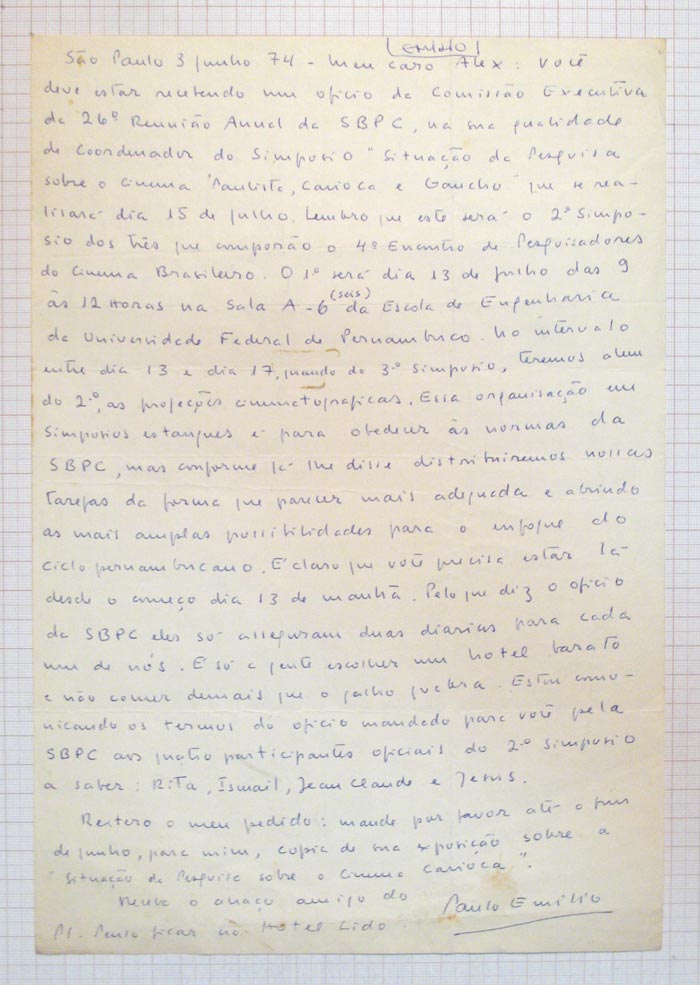 (EMILIO)
São Paulo 3 junho 74 - Meu caro Alex: Você
deve estar recebendo um oficio da Comissão Executiva
da 26º Reunião Anual da SBPC, na sua qualidade
de Coordenador do Simposio "Situação da Pesquisa
sobre o Cinema Paulista, Carioca e Gaucho" que se rea-
lisará dia 15 de julho. Lembro que este será o 2º Simpo-
sio dos três que comporão o 4º Encontro de Pesquisadores
do Cinema Brasileiro. O 1º será dia 13 de julho das 9
às 12 horas na Sala A-6 (seis) da Escola de Engenharia
da Universidade Federal de Pernambuco. No intervalo
entre dia 13 e dia 17, quando do 3º Simposio, teremos alem
do 2º, as projeções cinematograficas. Essa organisação em
simposios estanques é para obedecer às normas da
SBPC, mas conforme já lhe disse distribuiremos nossas
tarefas da forma que parecer mais adequada e abrindo
as mais amplas possibilidades para o enfoque do
ciclo pernambucano. É claro que você precisa estar lá
desde o começo dia 13 de manhã. Pelo que diz o oficio
da SBPC eles só asseguram duas diarias para cada
um de nós. É só a gente escolher um hotel barato
e não comer demais que o galho quebra. Estou comu-
nicando os termos do oficio mandado para você pela
SBPC aos quatro participantes oficiais do 2º Simposio
a saber: Rita, Ismail, Jean Claude e Jesus.
Reitero o meu pedido: mande por favor até o fim
de junho, para mim, copia de sua exposição sobre a
"Situação da Pesquisa sobre o Cinema Carioca".
Receba o abraço amigo do Paulo Emilio
PS. Penso ficar no Hotel Lido.